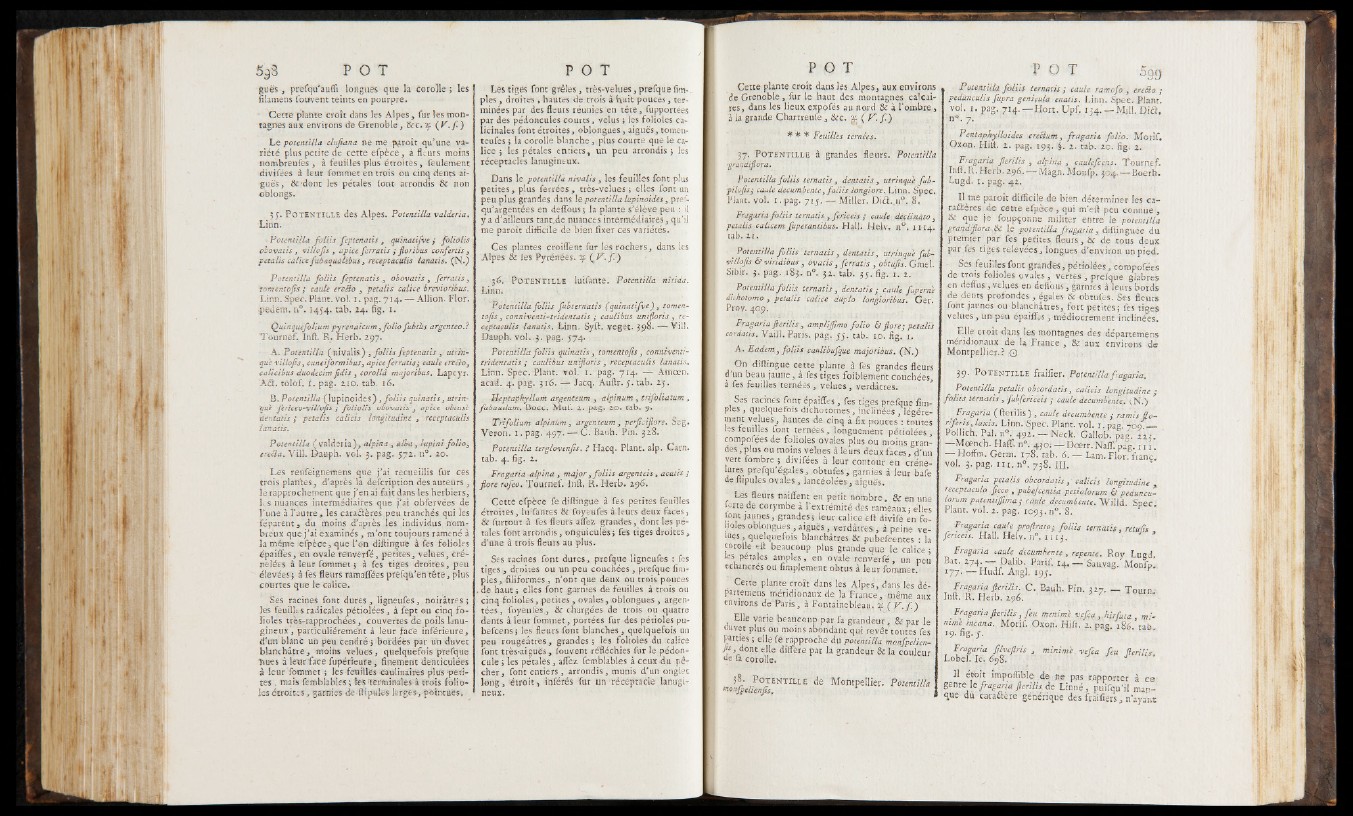 598 P O T P O T
guës, presqu'aussi longues que la corolle ; les
filamens souvent teints en pourpre.
Cette plante croît dans les Alpes, sur les mon-
tagnes aux environs de Grenoble, &c. ♃ (V. f.)
Le potentilla clusiana ne me paroît qu'une va-
riété plus petite de cette espèce, à fleurs moins
nombreuses, à feuilles plus étroites, seulement
divisées à leur sommet en trois ou cinq dents ai-
guës, & dont les pétales sont arrondis & non
oblongs.
35. POTENTILLE des Alpes. Potentilla valderia.
Linn.
Potentilla foliis septenatis, quinatisve ; foliolis
obovatis, villosis, apice serratis ; floribus confertis,
petalis calice subaequalibus, receptaculis lanatis. (N.)
Potentilla foliis septenatis, obovatis, serratis,
tomentosis ; caule erecto, petalis calice brevioribus.
Linn. Spec. Plant. vol. 1. pag. 714. — Allion. Flor.
pedem. n°. 1454. tab. 24. fig. 1.
Quinquefolium pyrenaicum, folio subtùs argenteo.?
Tournef. Inst. R. Herb. 297.
A. Potentilla (nivalis), foliis septenatis, utrin-
què villosis, cuneiformibus, apice serratis ; caule erecto,
calicibus duodecim fidis, corollâ majoribus. Lapeyr.
Act. tolos. 1. pag. 210. tab. 16.
B. Potentilla (lupinoides), foliis quinatis, utrin-
què sericeo-villosis ; foliolis obovatis, apice obtusè
dentatis ; petalis calicis longitudine, receptaculis
lanatis.
Potentilla (valderia), alpina, alba, lupini folio,
erecta. Vill. Dauph. vol. 3. pag. 572. n°. 20.
Les renseignemens que j'ai recueillis sur ces
trois plantes, d'après la description des auteurs,
le rapprochement que j'en ai fait dans les herbiers,
les nuances intermédiaires que j'ai observées de
l'une à l'autre, les caractères peu tranchés qui les
séparent, du moins d'après les individus nom-
breux que j'ai examinés, m'ont toujours ramené à
la même espèce, que l'on distingue à ses folioles
épaisses, en ovale renversé, petites, velues, cré-
nelées à leur sommet ; à ses tiges droites, peu
élevées ; à ses fleurs ramassées presqu'en tête, plus
courtes que le calice.
Ses racines sont dures, ligneuses, noirâtres ;
les feuilles radicales pétiolées, à sept ou cinq fo-
lioles très-rapprochées, couvertes de poils lanu-
gineux, particuliérement à leur face inférieure,
d'un blanc un peu cendré ; bordées par un duvet
blanchâtre, moins velues, quelquefois presque
nues à leur face supérieure, finement denticulées
à leur sommet ; les feuilles caulinaires plus peti-
tes, mais semblables ; les terminales à trois folio-
les étroites, garnies de stipules larges, pointues.
Les tiges sont grêles, très-velues, presque sim-
ples, droites, hautes de trois à huit pouces, ter-
minées par des fleurs réunies en tête, supportées
par des pédoncules courts, velus ; les folioles ca-
licinales sont étroites, oblongues, aiguës, tomen-
teuses ; la corolle blanche, plus courte que le ca-
lice ; les pétales entiers, un peu arrondis ; les
réceptacles lanugineux.
Dans le potentilla nivalis, les feuilles sont plus
petites, plus serrées, très-velues ; elles sont un
peu plus grandes dans le potentilla lupinoides, pres-
qu'argentées en dessous ; la plante s'élève peu : il
y a d'ailleurs tant de nuances intermédiaires, qu'il
me paroît difficile de bien fixer ces variétés.
Ces plantes croissent sur les rochers, dans les
Alpes & les Pyrénées. ♃ (V. f.)
36. POTENTILLE luisante. Potentilla nitida.
Linn.
Potentilla foliis subternatis (quinatisve), tomen-
tosis, conniventi-tridentatis ; caulibus unifloris, re-
ceptaculis lanatis. Linn. Syst. veget. 398. — Vill.
Dauph. vol. 3. pag. 574.
Potentilla foliis quinatis, tomentosis, conniventi-
tridentatis ; caulibus unifloris, receptaculis lanatis.
Linn. Spec. Plant. vol. 1. pag. 714. — Amœn.
acad. 4. pag. 316. — Jacq. Austr. 5. tab. 25.
Heptaphyllum argenteum, alpinum, trifoliatum,
subacaulum. Bocc. Mus. 2. pag. 20. tab. 9.
Trifolium alpinum, argenteum, persiciflore. Seg.
Veron. 1. pag. 497. — C. Bauh. Pin. 328.
Potentilla terglovensis. ? Hacq. Plant. alp. Carn.
tab. 4. fig. 2.
Fragaria alpina, major, foliis argenteis, acutis ;
flore roseo. Tournef. Inst. R. Herb. 296.
Cette espèce se distingue à ses petites feuilles
étroites, luisantes & soyeuses à leurs deux faces,
& surtout à ses fleurs assez grandes, dont les pé-
tales sont arrondis, onguiculés ; ses tiges droites,
d'une à trois fleurs au plus.
Ses racines sont dures, presque ligneuses : ses
tiges, droites ou un peu couchées, presque sim-
ples, filiformes, n'ont que deux ou trois pouces
de haut ; elles sont garnies de feuilles à trois ou
cinq folioles, petites, ovales, oblongues, argen-
tées, soyeuses, & chargées de trois ou quatre
dents à leur sommet, portées sur des pétioles pu-
bescens ; les fleurs sont blanches, quelquefois un
peu rougeâtres, grandes ; les folioles du calice
sont très-aiguës, souvent réfléchies sur le pédon-
cule ; les pétales, assez semblables à ceux du pê-
cher, sont entiers, arrondis, munis d'un onglet
long, étroit, insérés sur un réceptacle lanugi-
neux.
P O T P O T 599
Cette plante croît dans les Alpes, aux environs
de Grenoble, sur le haut des montagnes calcai-
res, dans les lieux exposés au nord & à l'ombre,
à la grande Chartreuse, &c. ♃ (V. f.)
* * * Feuilles ternées.
37. POTENTILLE à grandes fleurs. Potentilla
grandiflora.
Potentilla foliis ternatis, dentatis, utrinquè sub-
pilosis ; caule decumbente, foliis longiore. Linn. Spec.
Plant. vol. 1. pag. 715. — Miller. Dict. n°. 8.
Fragaria foliis ternatis, sericeis ; caule declinato,
petalis calicem superantibus. Hall. Helv. n°. 1114.
tab. 21.
Potentilla foliis ternatis, dentatis, utrinquè sub-
villosis & viridibus, ovatis, serratis, obtusis. Gmel.
Sibir. 3. pag. 183. n°. 32. tab. 35. fig. 1. 2.
Potentilla foliis ternatis, dentatis ; caule supernè
dichotomo, petalis calice duplo longioribus. Ger.
Prov. 409.
Fragaria sterilis, amplissimo folio & flore ; petalis
cordatis. Vaill. Paris. pag. 55. tab. 10. fig. 1.
A. Eadem, foliis caulibusque majoribus. (N.)
On distingue cette plante à ses grandes fleurs
d'un beau jaune, à ses tiges foiblement couchées,
à ses feuilles ternées, velues, verdâtres.
Ses racines sont épaisses, ses tiges presque sim-
ples, quelquefois dichotomes, inclinées, légére-
ment velues, hautes de cinq à six pouces : toutes
les feuilles sont ternées, longuement pétiolées,
composées de folioles ovales plus ou moins gran-
des, plus ou moins velues à leurs deux faces, d'un
vert sombre ; divisées à leur contour en créne-
lures presqu'égales, obtuses, garnies à leur base
de stipules ovales, lancéolées, aiguës.
Les fleurs naissent en petit nombre, & en une
sorte de corymbe à l'extrémité des rameaux ; elles
sont jaunes, grandes ; leur calice est divisé en fo-
lioles oblongues, aiguës, verdâtres, à peine ve-
lues, quelquefois blanchâtres & pubescentes : la
corolle est beaucoup plus grande que le calice ;
les pétales amples, en ovale renversé, un peu
échancrés ou simplement obtus à leur sommet.
Cette plante croît dans les Alpes, dans les dé-
partemens méridionaux de la France, même aux
environs de Paris, à Fontainebleau. ♃ (V. f.)
Elle varie beaucoup par sa grandeur, & par le
duvet plus ou moins abondant qui revêt toutes ses
parties ; elle se rapproche du potentilla monspelien-
sis, dont elle diffère par la grandeur & la couleur
de sa corolle.
38. POTENTILLE de Montpellier. Potentilla
monspeliensis.
Potentilla foliis ternatis ; caule ramoso, erecto ;
pedunculis supra genicula enatis. Linn. Spec. Plant.
vol. 1. pag. 714. — Hort. Ups. 134. — Mill. Dict.
n°. 7.
Pentaphylloides erectum, fragariæ folio. Moris.
Oxon. Hist. 2. pag. 193. §. 2. tab. 20. fig. 2.
Fragaria sterilis, alpina, caulescens. Tournef.
Inst. R. Herb. 296. — Magn. Monsp. 304. — Boerh.
Lugd. 1. pag. 42.
Il me paroît difficile de bien déterminer les ca-
ractères de cette espèce, qui m'est peu connue,
& que je soupçonne militer entre le potentilla
grandiflora & le potentilla fragaria, distinguée du
premier par ses petites fleurs, & de tous deux
par ses tiges relevées, longues d'environ un pied.
Ses feuilles sont grandes, pétiolées, composées
de trois folioles ovales, vertes, presque glabres
en dessus, velues en dessous, garnies à leurs bords
de dents profondes, égales & obtuses. Ses fleurs
sont jaunes ou blanchâtres, fort petites ; ses tiges
velues, un peu épaisses, médiocrement inclinées.
Elle croît dans les montagnes des départemens
méridionaux de la France, & aux environs de
Montpellier.? ⊙
39. POTENTILLE fraisier. Potentilla fragaria.
Potentilla petalis obcordatis, calicis longitudine ;
foliis ternatis, subsericeis ; caule decumbente. (N.)
Fragaria (sterilis), caule decumbente ; ramis flo-
riferis, laxis. Linn. Spec. Plant. vol. 1. pag. 709. —
Pollich. Pal. n°. 492. — Neck. Gallob. pag. 223.
— Mœnch. Hass. n°. 430. — Dœrr. Nass. pag. 111.
— Hoffm. Germ. 178. tab. 6. — Lam. Flor. franç.
vol. 3. pag. 111. n°. 738. III.
Fragaria petalis obcordatis, calicis longitudine,
receptaculo sicco, pubescentia petiolorum & peduncu-
lorum patentissima ; caule decumbente. Willd. Spec.
Plant. vol. 2. pag. 1093. n°. 8.
Fragaria caule prostrato ; foliis ternatis, retusis,
sericeis. Hall. Helv. n°. 1113.
Fragaria caule decumbente, repente. Roy. Lugd.
Bat. 274. — Dalib. Paris. 14. — Sauvag. Monsp.
177. — Huds. Angl. 195.
Fragaria sterilis. C. Bauh. Pin. 327. — Tourn.
Inst. R. Herb. 296.
Fragaria sterilis, seu minimè vesca, hirsuta, mi-
nimè incana. Moris. Oxon. Hist. 2. pag. 186. tab.
19. fig. 5.
Fragaria silvestris, minimè vesca seu sterilis.
Lobel. Ic. 698.
Il étoit impossible de ne pas rapporter à ce
genre le fragaria sterilis de Linné, puisqu'il man-
que du caractère générique des fraisiers, n'ayant